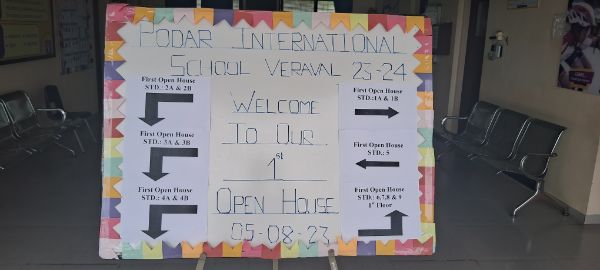 PODAR INTERNATIONAL
SCHOOL VERAVAL 23-24
First Open House
STD.: 2A & 2B
First Open House
STD.: 3A & 3B
First Open House
STD.: 4A & 4B
WELCOME
TO OUR
1st
OPEN HOUSE
05-08-23
First Open House
STD.:1A & 1B
First Open House
STD.: 5
First Open House
STD.: 6,7,8 & 9
1st Floor